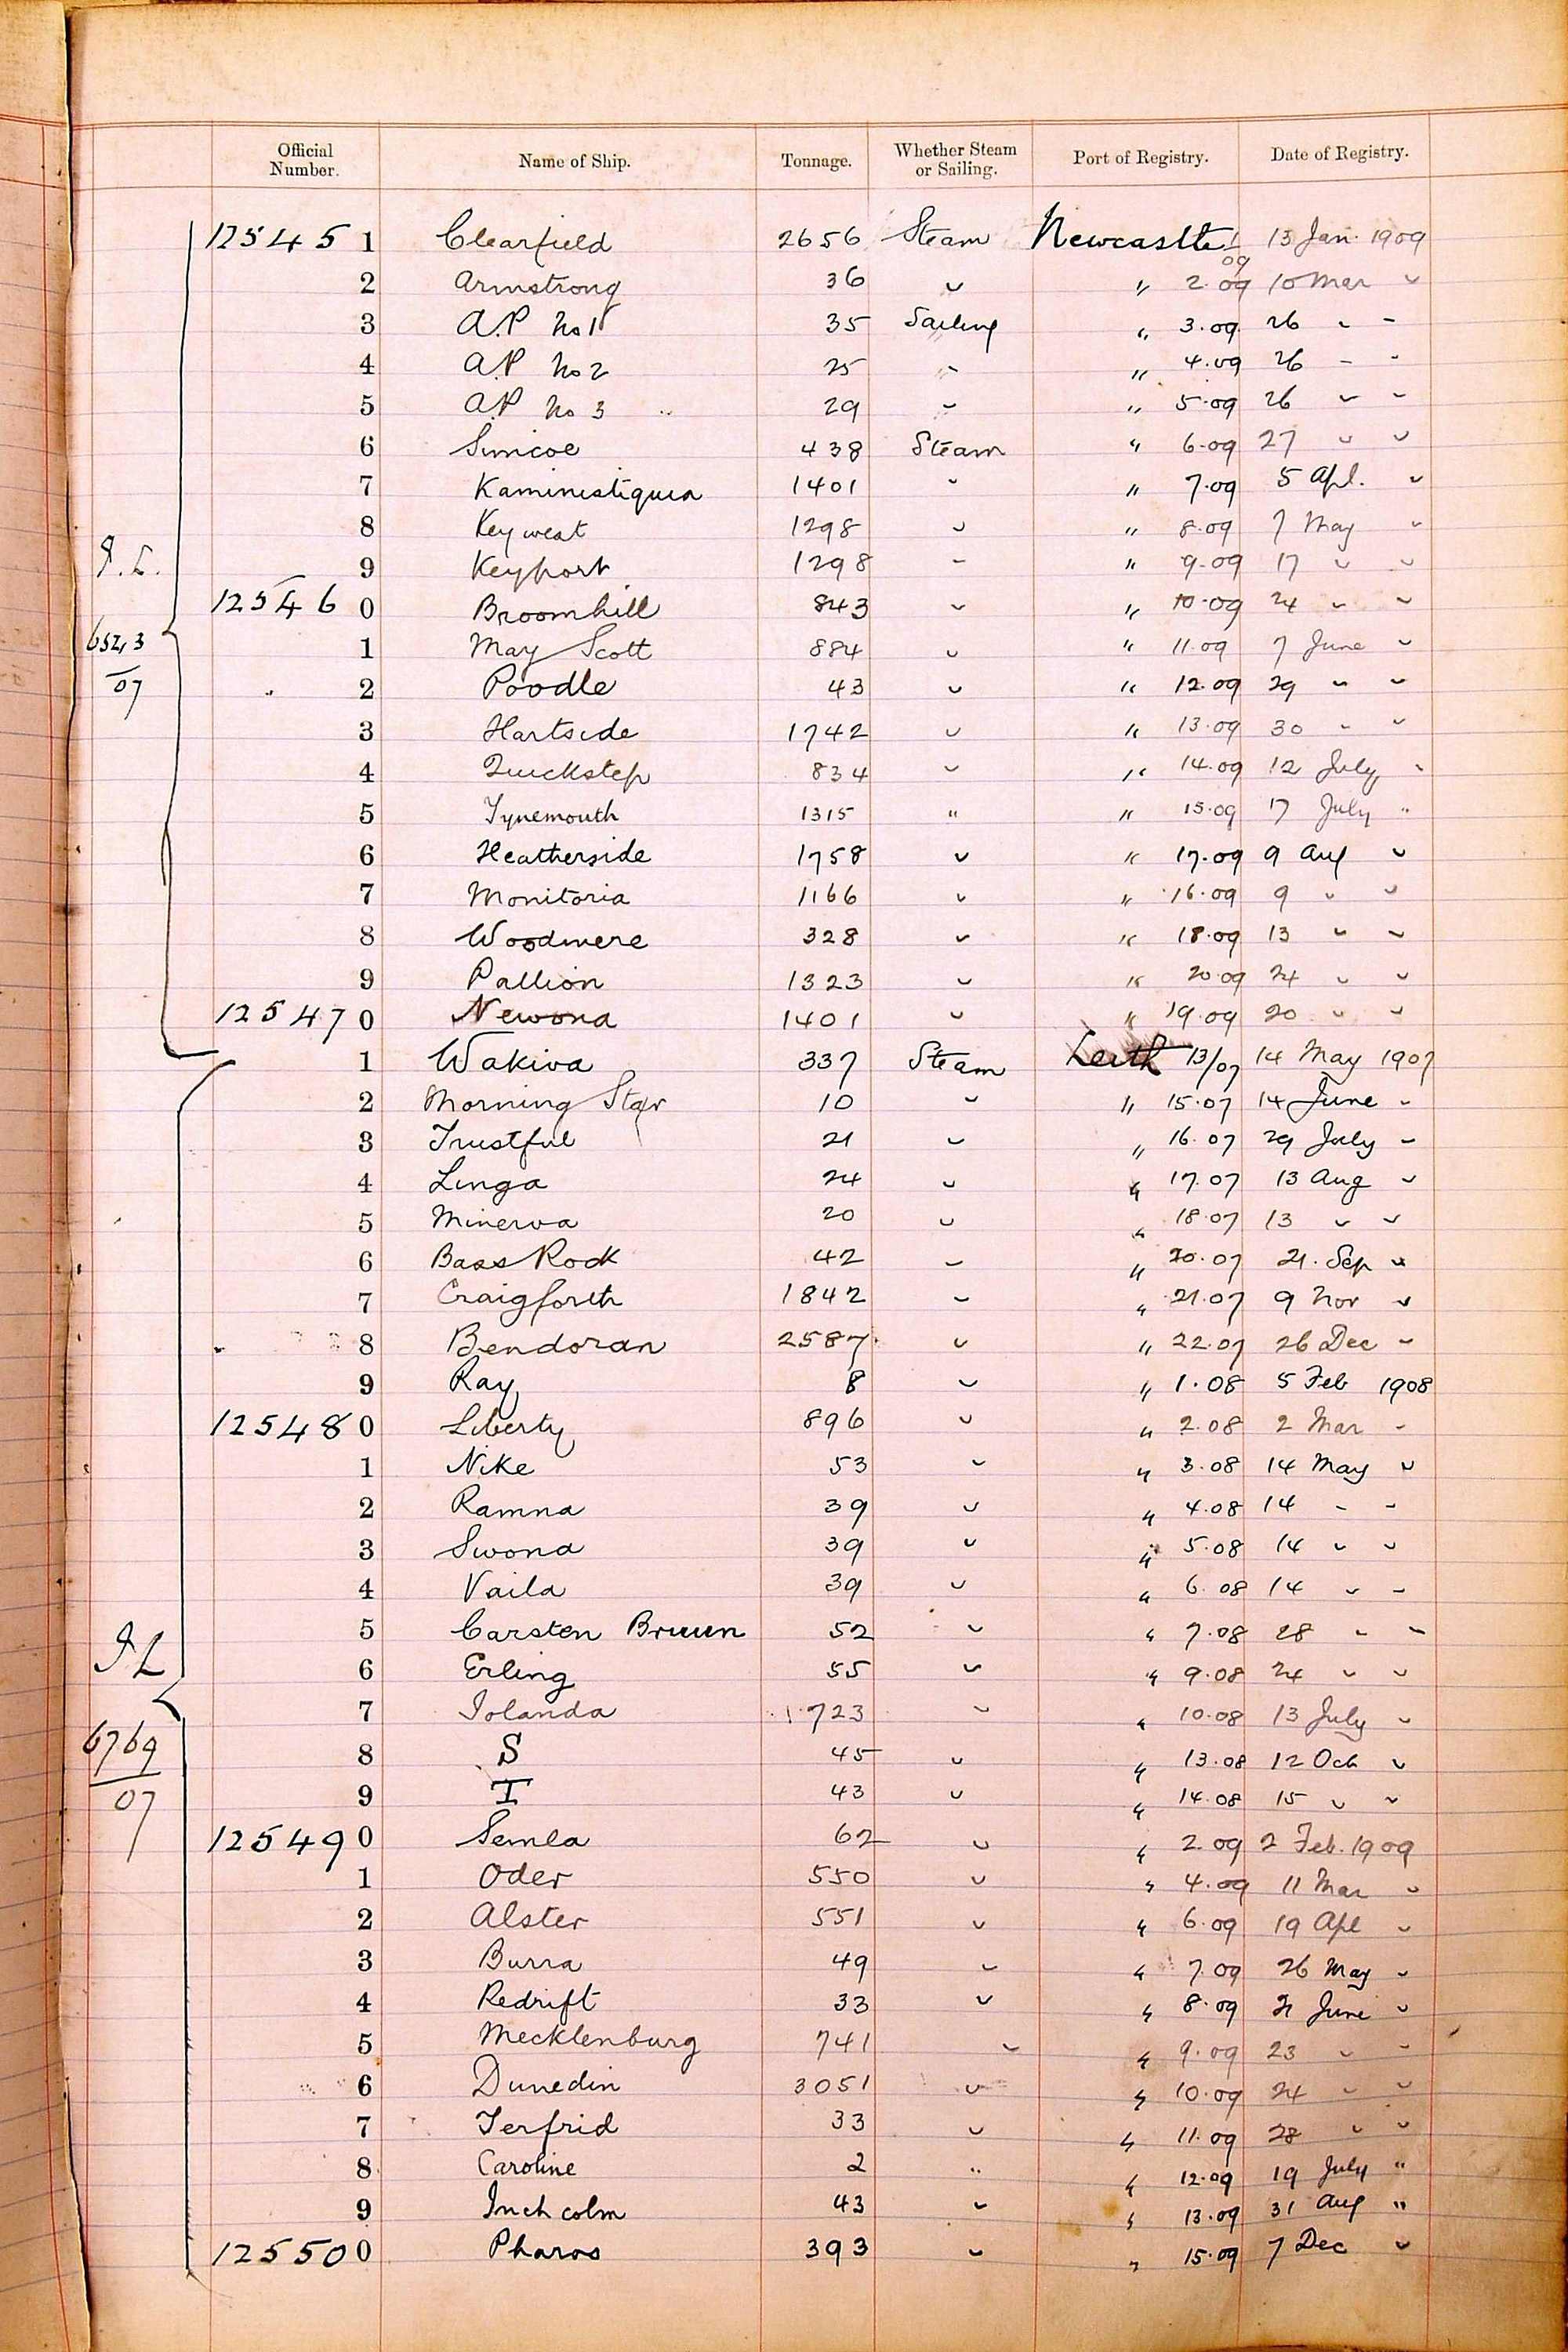 Official Number. Name of Ship. Tonnage. Whether Steam or Sailing. Port of Registry. Date of Registry.
12545 1 Clearfield 2656 Steam Newcastle 1 09 13 Jan. 1909
2 Armstrong 36 " " 2.09 10 Mar "
3 A.P No 1 35 Sailing " 3.09 26 " "
4 A.P No 2 25 " " 4.09 26 " "
5 A.P No 3 29 " " 5.09 26 " "
6 Simcoe 438 Steam " 6.09 27 " "
7 Kaministiquia 1401 " " 7.09 5 Apl. "
8 Key west 1298 " " 8.09 7 May "
9 Keyport 1298 " " 9.09 17 " "
12546 0 Broomhill 843 " " 10.09 24 " "
1 May Scott 884 " " 11.09 7 June "
2 Poodle 43 " " 12.09 29 " "
3 Hartside 1742 " " 13.09 30 " "
4 Quickstep 834 " " 14.09 12 July "
5 Tynemouth 1315 " " 15.09 17 July "
6 Heatherside 1758 " " 17.09 9 Aug "
7 Monitoria 1166 " " 16.09 9 " "
8 Woodmere 328 " " 18.09 13 " "
9 Pallion 1323 " " 20.09 24 " "
12547 0 Newona 1401 " " 19.09 20 " "
1 Wakiva 337 Steam Leith 13/07 14 May 1907
2 Morning Star 10 " " 15.07 14 June "
3 Trustful 21 " " 16.07 29 July "
4 Linga 24 " " 17.07 13 Aug "
5 Minerva 20 " " 18.07 13 " "
6 Bass Rock 42 " " 20.07 21. Sep "
7 Craigforth 1842 " " 21.07 9 Nov "
8 Bendoran 2587 " " 22.07 26 Dec "
9 Ray 8 " " 1.08 5 Feb 1908
12548 0 Liberty 896 " " 2.08 2 Mar "
1 Nike 53 " " 3.08 14 May "
2 Ramna 39 " " 4.08 14 " "
3 Swona 39 " " 5.08 14 " "
4 Vaila 39 " " 6.08 14 " "
5 Carsten Bruun 52 " " 7.08 28 " "
6 Erling 55 " " 9.08 24 " "
7 Iolanda 723 " " 10.08 13 July "
8 S 45 " " 13.08 12 Oct "
9 T 43 " " 14.08 15 " "
12549 0 Semla 62 " " 2.09 2 Feb. 1909
1 Oder 550 " " 4.09 11 Mar "
2 Alster 551 " " 6.09 19 Apl "
3 Burra 49 " " 7.09 26 May "
4 Redrift 33 " " 8.09 21 June "
5 Mecklenburg 741 " " 9.09 23 " "
6 Dunedin 3051 " " 10.09 24 " "
7 Terfrid 33 " " 11.09 28 " "
8 Caroline 2 " " 12.09 19 July "
9 Inchcolm 43 " " 13.09 31 Aug "
12550 0 Pharos 393 " " 15.09 7 Dec "
6769
07